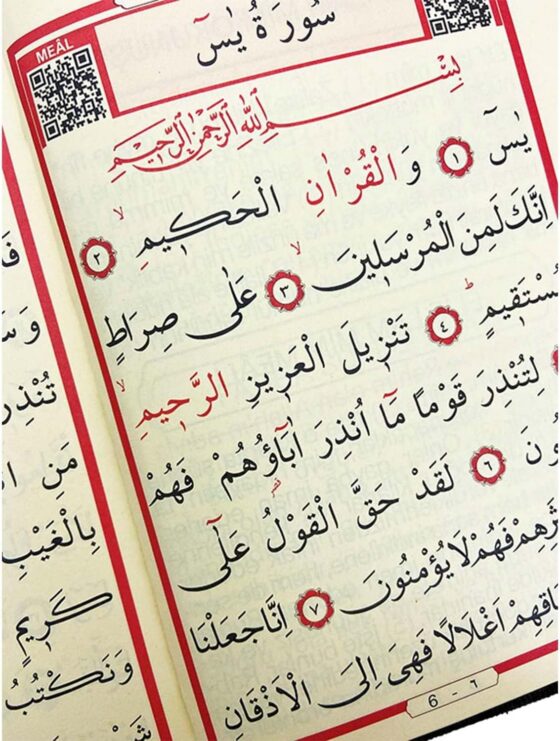 MEÂL
سُورَةُ يٰسٓ
بِسْمِ اللهِ الرَّحْمٰنِ الرَّحِيمِ
يٰسٓ ﴿١﴾ وَالْقُرْاٰنِ الْحَكِيمِ ﴿٢﴾
اِنَّكَ لَمِنَ الْمُرْسَلِينَ ﴿٣﴾ عَلٰى صِرَاطٍ
ـسْتَقِيمٍ ﴿٤﴾ تَنْزِيلَ الْعَزِيزِ الرَّحِيمِ
لِتُنْذِرَ قَوْمًا مَٓا اُنْذِرَ اٰبَٓاؤُهُمْ فَهُمْ
ـونَ ﴿٦﴾ لَقَدْ حَقَّ الْقَوْلُ عَلٰٓى
ـرِهِمْ فَهُمْ لَا يُؤْمِنُونَ ﴿٧﴾ اِنَّا جَعَلْنَا
ـاقِهِمْ اَغْلَالًا فَهِىَ اِلَى الْاَذْقَانِ
6 - ٦
تُنْذِرُ
مِنِ
بِالْغَيْبِ
كَرِيمٍ
وَنَكْتُبُ